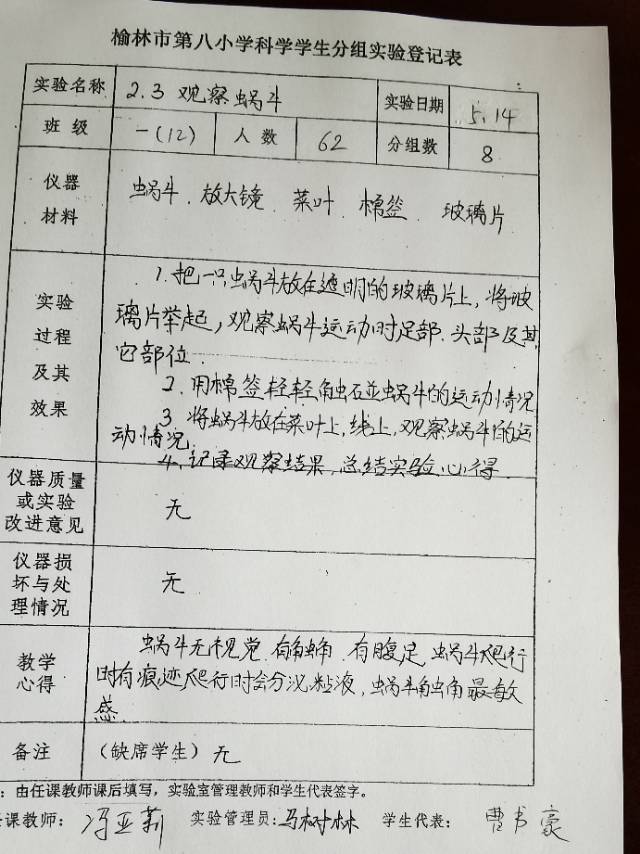 榆林市第八小学科学学生分组实验登记表
实验名称 2.3 观察蜗牛 实验日期 5.14
班级 一(12) 人数 62 分组数 8
仪器
材料
蜗牛. 放大镜 菜叶. 棉签. 玻璃片
实验
过程
及其
效果
1.把一只蜗牛放在透明的玻璃片上,将玻
璃片举起,观察蜗牛运动时足部.头部及其
它部位.
2.用棉签轻轻触碰蜗牛的运动情况
3.将蜗牛放在菜叶上,线上,观察蜗牛的运
动情况
4.记录观察结果,总结实验心得.
仪器质量
或实验
改进意见
无
仪器损
坏与处
理情况
无
教学
心得
蜗牛无视觉.有触角.有腹足.蜗牛爬行
时有痕迹爬行时会分泌粘液,蜗牛触角最敏
感.
备注 (缺席学生) 无
:由任课教师课后填写,实验室管理教师和学生代表签字。
课教师: 冯亚莉 实验管理员:马树林 学生代表: 曹书豪